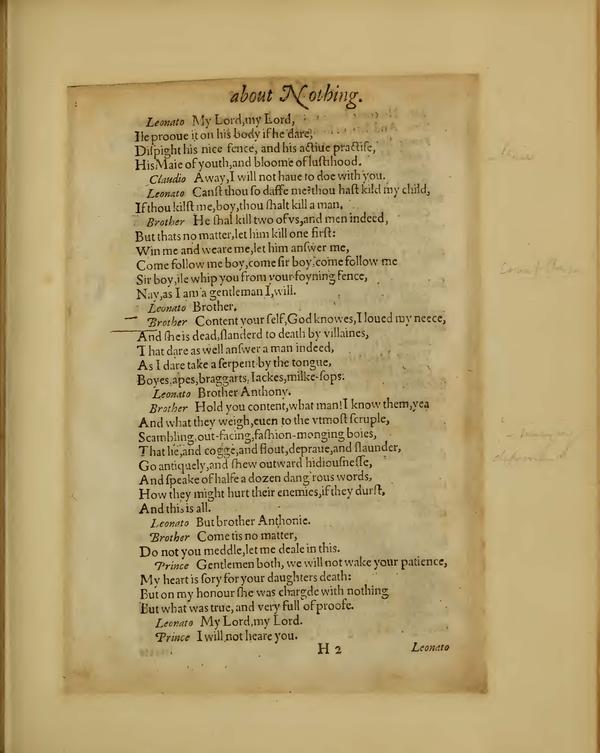 about Nothing.
Leonato My Lord,my Lord,
Ile prooue it on his body if he dare,
Diſpight his nice fence, and his actiue practiſe,
His Maie of youth,and bloome of luſtihood.
Claudio Away,I will not haue to doe with you.
Leonato Canſt thou ſo daffe me?thou haſt kild my child,
If thou kilſt me,boy,thou ſhalt kill a man,
Brother He ſhal kill two of vs,and men indeed,
But thats no matter,let him kill one firſt:
Win me and weare me,let him anſwer me,
Come follow me boy,come ſir boy,come follow me
Sir boy,ile whip you from your foyning fence,
Nay,as I am a gentleman I,will.
Leonato Brother.
Brother Content your ſelf,God knowes,I loued my neece,
And ſhe is dead,ſlanderd to death by villaines,
That dare as well anſwer a man indeed,
As I dare take a ſerpent by the tongue,
Boyes,apes,braggarts,Iackes,milke-ſops.
Leonato Brother Anthony.
Brother Hold you content,what man!I know them,yea
And what they weigh,euen to the vtmoſt ſcruple,
Scambling,out-facing,faſhion-monging boies,
That lie,and cogge,and flout,depraue,and ſlaunder,
Go antiquely,and ſhew outward hidiouſneſſe,
And ſpeake of halfe a dozen dang'rous words,
How they might hurt their enemies,if they durſt,
And this is all.
Leonato But brother Anthonie.
Brother Come tis no matter,
Do not you meddle,let me deale in this.
Prince Gentlemen both, we will not wake your patience,
My heart is ſory for your daughters death:
But on my honour ſhe was chargde with nothing
But what was true, and very full of proofe.
Leonato My Lord,my Lord.
Prince I will not heare you.
H 2 Leonato